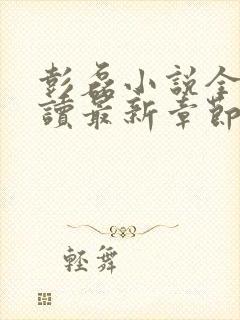 彭磊小說全
讀最新章節
輕舞